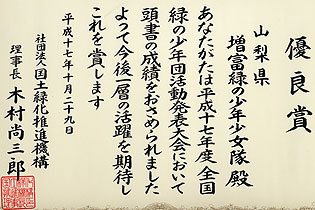 優良賞
山梨県
増富緑の少年少女隊殿
あなたがたは平成十七年度全国
緑の少年団活動発表大会において
頭書の成績をおさめられました
よって今後一層の活躍を期待し
これを賞します
平成十七年十月二十九日
社団法人国土緑化推進機構
理事長木村尚三郎